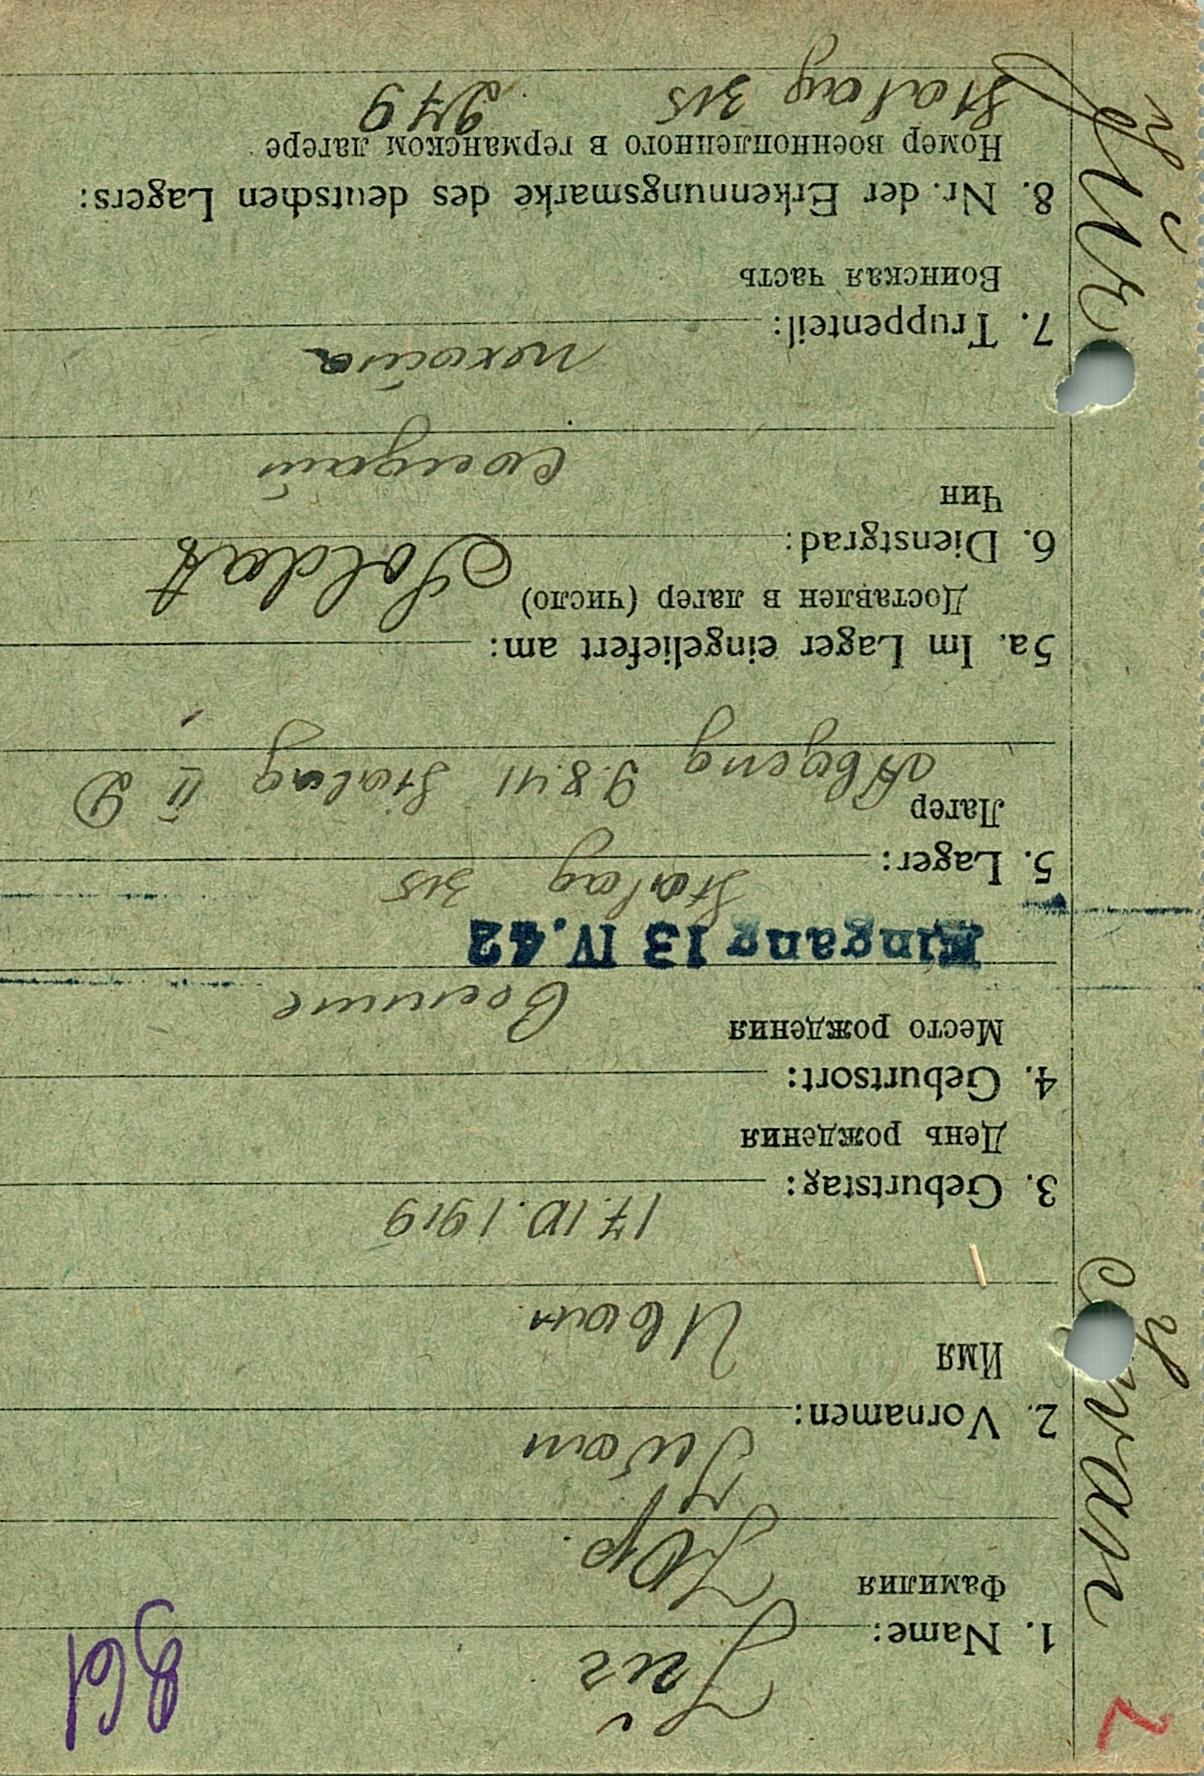 2
361
Jür
1. Name:
Фамилия
Юр.
Iwan
2. Vornamen:
Имя
Иван
17.10.1919
3. Geburtstag:
День рождения
4. Geburtsort:
Место рождения
Eingang 13 IV. 42
Stalag 315
5. Lager:
Лагер
Abgeng 9.8.41 Stalag II D
5a. Im Lager eingeliefert am:
Доставлен в лагер (число)
Soldat
6. Dienstgrad:
Чин
солдат
пехота
7. Truppenteil:
Воинская часть
8. Nr. der Erkennungsmarke des deutschen Lagers:
Номер военнопленного в германском лагере
Stalag 315 279
Jür Iwan